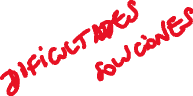 DIFICULTADES
SOLUCIONES